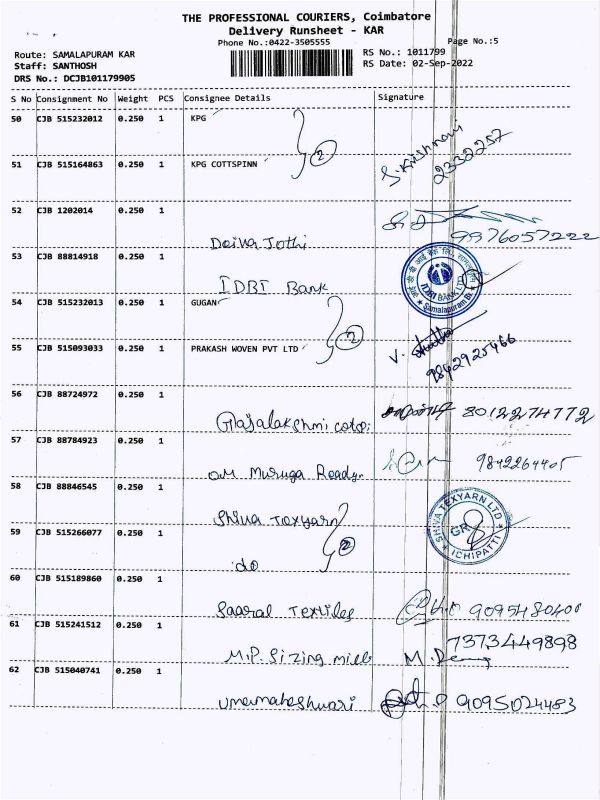 THE PROFESSIONAL COURIERS, Coimbatore
Delivery Runsheet - KAR
Phone No.:0422-3505555
Page No.:5
Route: SAMALAPURAM KAR
RS No.: 1011799
Staff: SANTHOSH
RS Date: 02-Sep-2022
DRS No.: DCJB101179905
S No Consignment No Weight PCS Consignee Details Signature
50 CJB 515232012 0.250 1 KPG
S. Krishnavi
2332257
51 CJB 515164863 0.250 1 KPG COTTSPINN 2
52 CJB 1202014 0.250 1
Deiva Jothi 9976057222
53 CJB 88814918 0.250 1
IDBI Bank
IDBI BANK LTD
Samalapuram Br.
54 CJB 515232013 0.250 1 GUGAN
2
55 CJB 515093033 0.250 1 PRAKASH WOVEN PVT LTD
V. 9842925466
56 CJB 88724972 0.250 1
Rajalakshmi coto: 8012274772
57 CJB 88784923 0.250 1
OM Muruga Ready- 9842264405
58 CJB 88846545 0.250 1
Shiva Texyarn
SHIVA TEXYARN LTD
ICHIPATTI
59 CJB 515266077 0.250 1
2
do
60 CJB 515189860 0.250 1
Saaral Textiles 9095480400
61 CJB 515241512 0.250 1
7373449898
M.P. Sizing mill M.
62 CJB 515040741 0.250 1
Umamaheshwari 9095024483